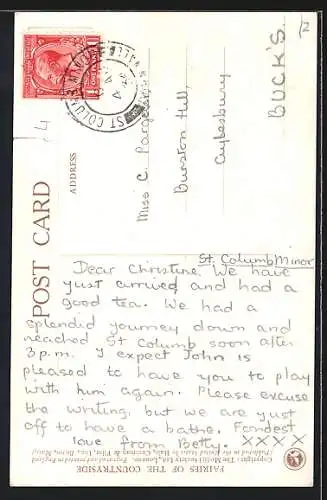 12
ST. COLUMB MINOR
ONE PENNY
4
POST CARD
ADDRESS
Miss C.
Burston Hill,
Aylesbury
BUCK'S
St. Columb Minor
Dear Christine. We have
just arrived and had a
good tea. We had a
splendid journey down and
reached St Columb soon after
3 p.m. I expect John is
pleased to have you to play
with him again. Please excuse
the writing, but we are just
off to have a bathe. Fondest
love from Betty. XXXX
FAIRIES OF THE COUNTRYSIDE
Copyright: The Medici Society Ltd., London.